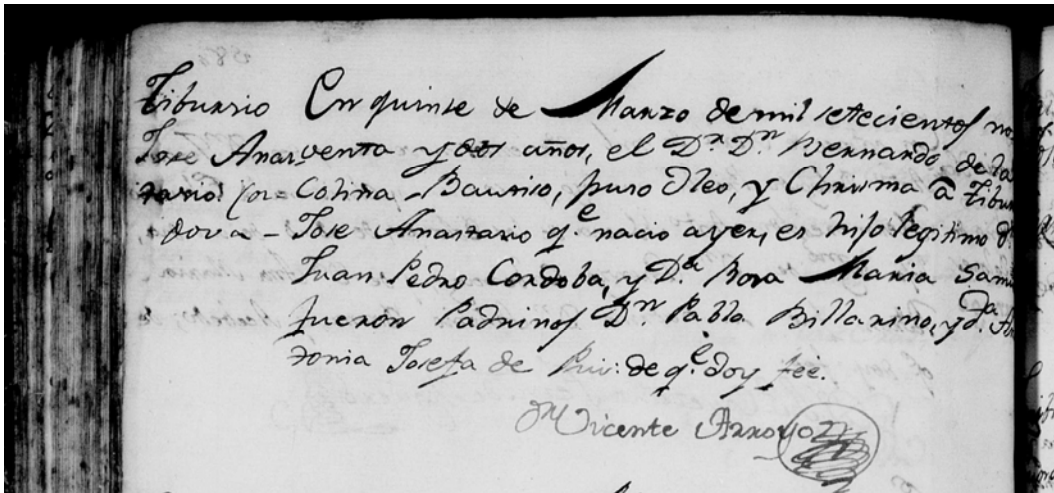 Tibursio En quinse de Marzo de mil setecientos no
Jose Anas, venta y dos años, el D.r D.n Bernardo de la
tario: Cor= Colina Bautiso, puso Oleo, y Chrisma â Tibur
dova - Jose Anastario q.e nacio ayer, es hijo legitimo d.n
Juan Pedro Cordoba, y D.a Rosa Maria
fueron Padrinos D.n Pablo Billarino, y d.a An
tonia Josefa de de q.e doy fee.
Vicente Arroyo